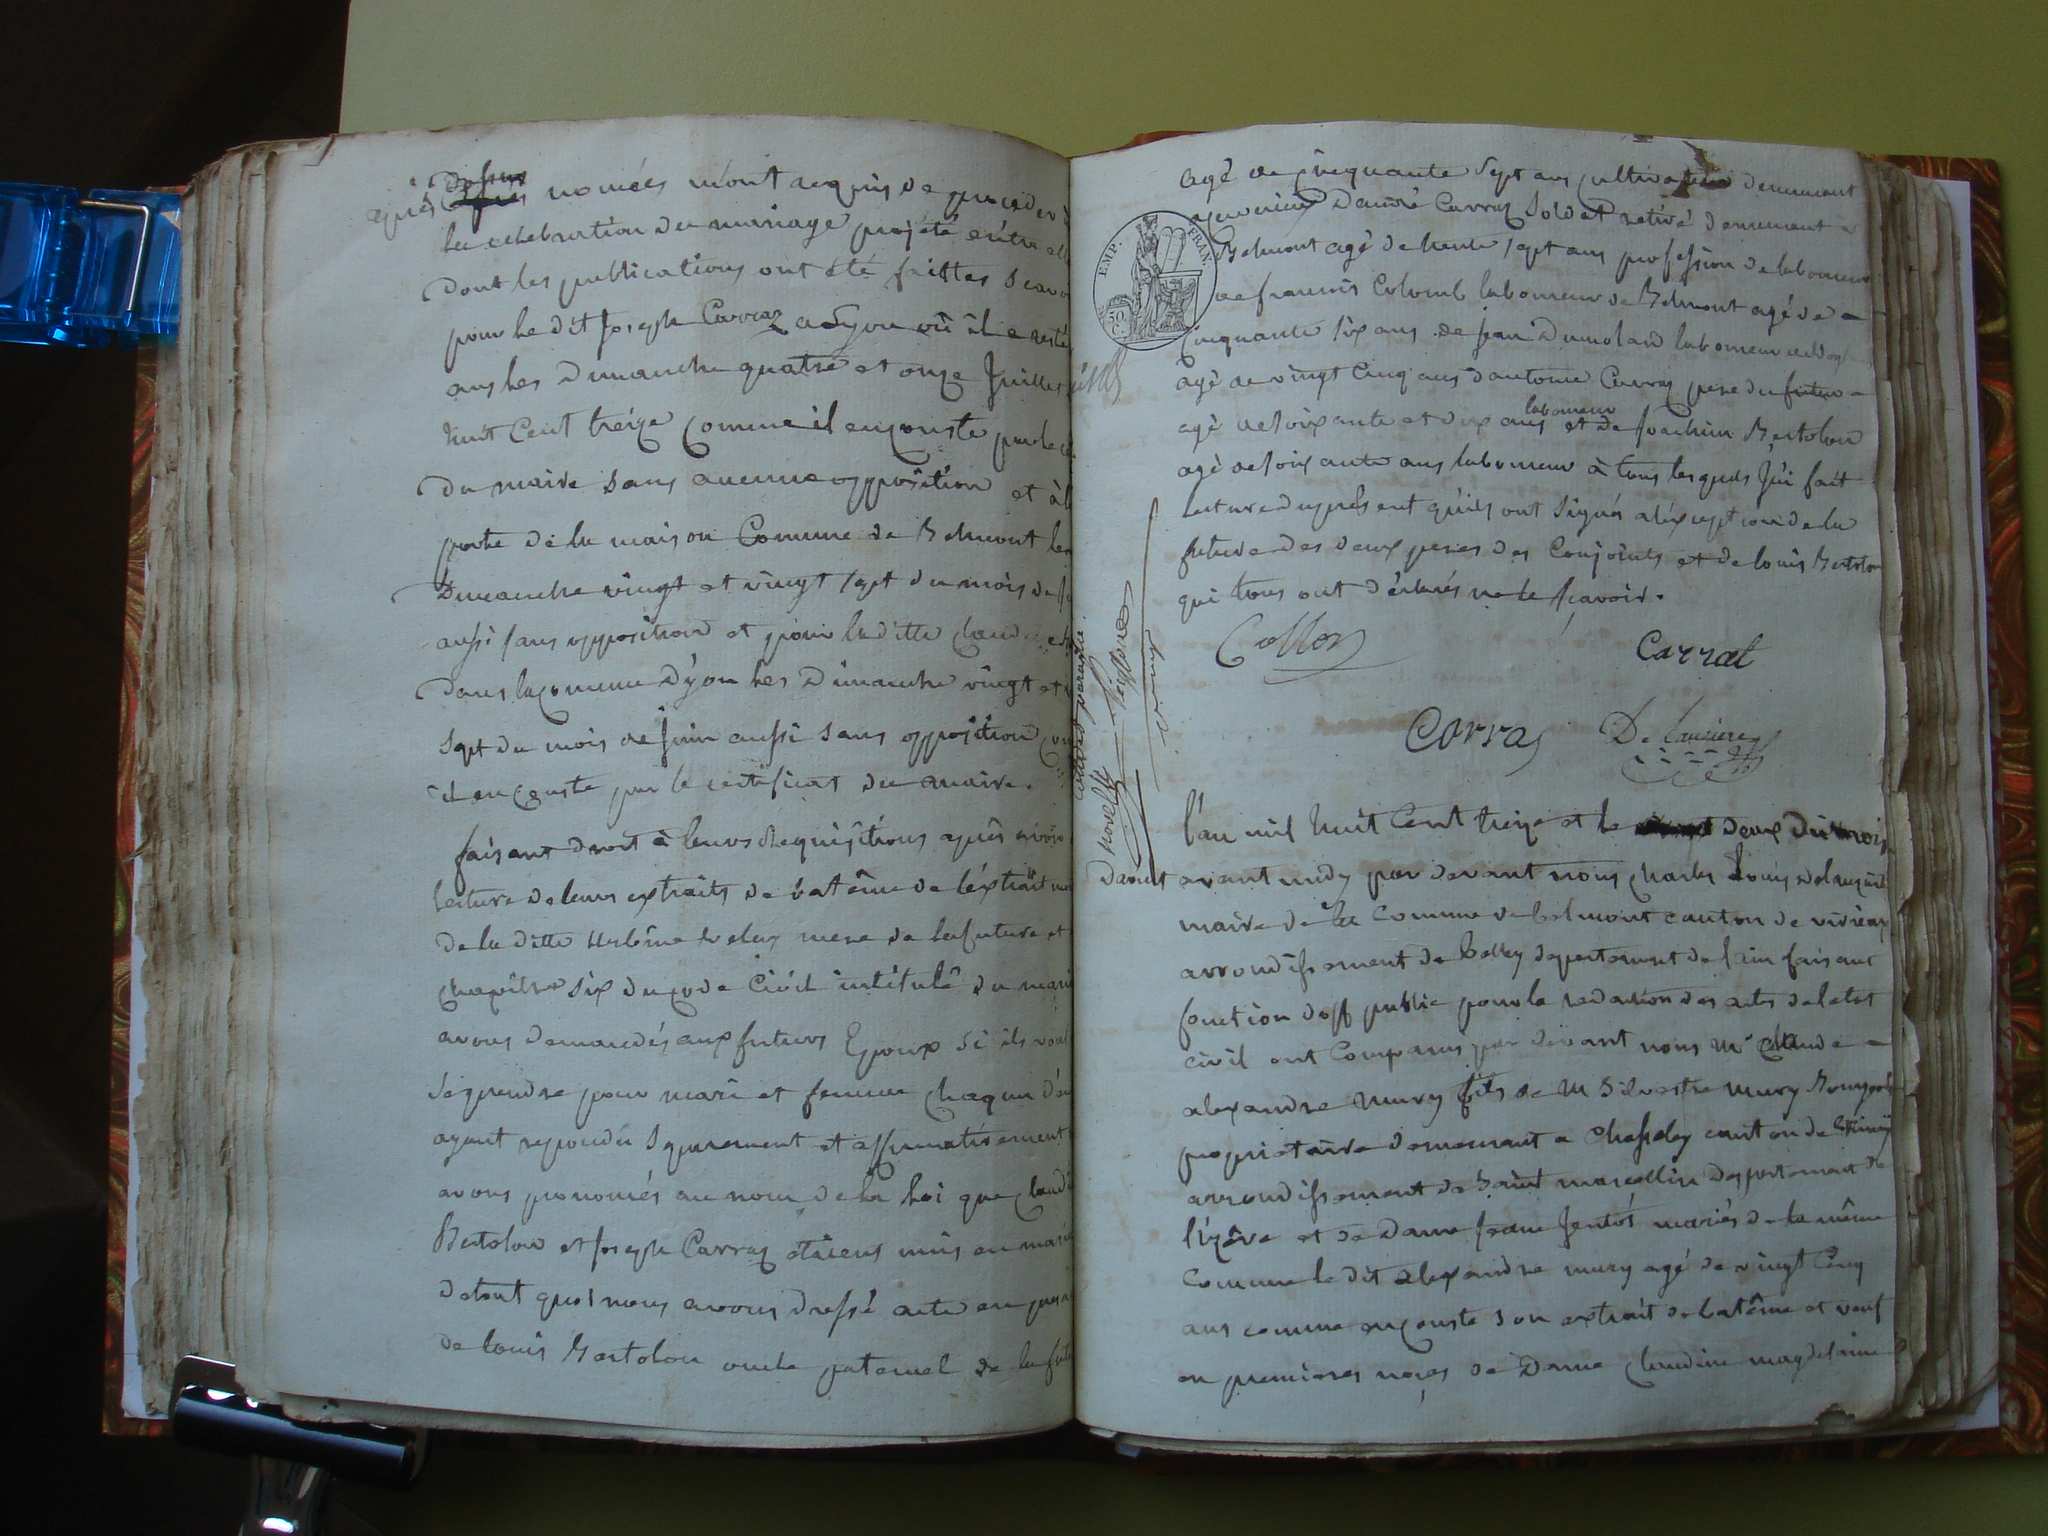 après dessus nomées m'ont requis de proceder à
la celebration du mariage projété entre
dont les publications ont été faittes
pour le dit Joseph Carraz a Lyon où il a resté
ans les Dimanche quatre et onze Juillet
huit Cent treize comme il enconste par le
du maire sans aucune opposition et à la
porte de la maison Comune de Belmont les
Dimanche vingt et vingt sept du mois de
aussi sans opposition et pour la ditte
dans la comune D'yon les Dimanche vingt et
sept du mois de Juin aussi sans opposition
il en conste par le certificat du maire.
faisant droit à leurs Requisitions après avoir
lecture de leurs extraits de batême de l'extrait
de la ditte mere de la future et
chapitre six du code Civil intitulé du
avons demandés aux futurs Epoux si ils
se prendre pour mari et femme chaqun
ayant repondu separement et affirmativement
avons pronomés au nom de la Loi que
Bertolon et Joseph Carraz étaient unis en
de tout quoi nous avons dressé acte en
de louis Bertolon oncle paternel de la
agé de cinquante sept ans cultivateur demeurant
D'andré Carraz Soldat retiré demeurant a
Belmont agé de trente sept ans profession de laboureur
de francois Colomb laboureur de Belmont agé de
Cinquante six ans de Jean Dumolard laboureur
agé de vingt Cinq ans d'antoine Carraz pere du futur
EMP. FRAN.
50 C.
laboureur
agé de soixante et dix ans et de Joachim Bertolon
agé de soixante ans laboureur à tous lesquels J'ai fait
lecture du présent qu'ils ont signés a l'exception de la
future des deux peres des Conjoints et de louis Bertolon
qui tous ont déclarés ne le sçavoir.
Carrat
Carraz
l'an mil huit Cent treize et le deux du mois
d'aout avant midy par devant nous Charles Louis
maire de la Commune de belmont canton de virieu
arrondissement de belley departement de l'ain faisant
fonction d'off public pour la redaction des actes de l'etat
civil ont Comparus par devant nous Mr Claude
alexandre mury fils de M Silvestre mury
proprietaire demeurant a Chasseley canton de
arrondissement de Saint marcellin departement de
l'izère et de Dame Jeanne mariés de la même
Commune le dit alexandre mury agé de vingt Cinq
ans comme en conste son extrait de batême et veuf
en premieres noces de Dame Claudine magdelaine